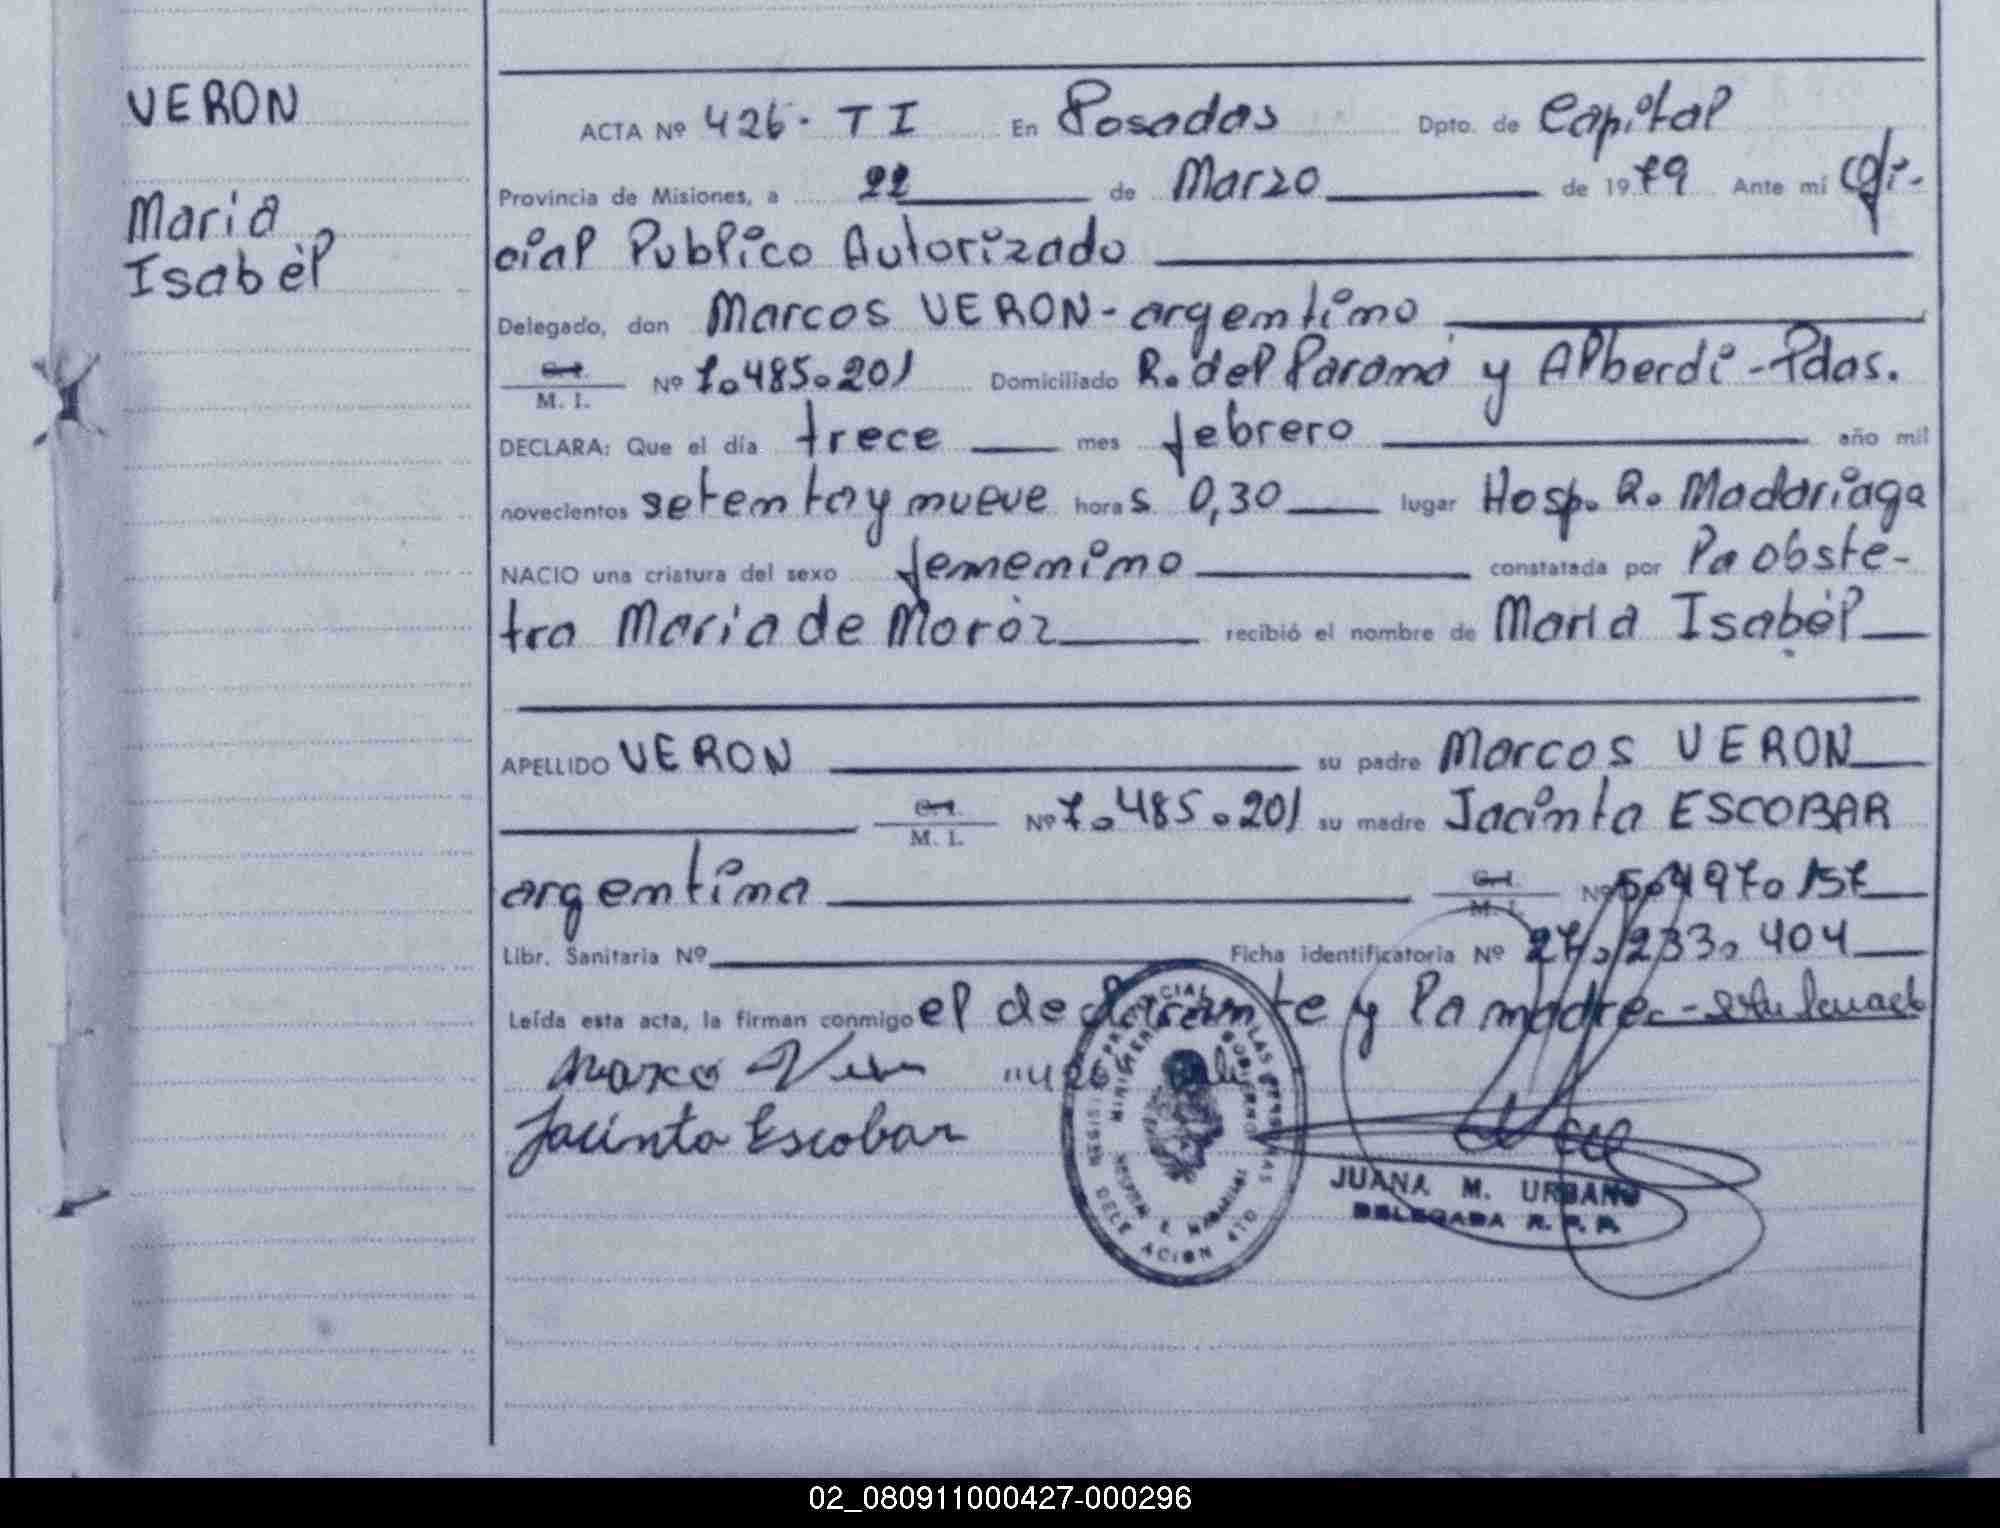 VERON
Maria
Isabèl
ACTA Nº 426 · T I En Posadas Dpto. de Capital
Provincia de Misiones, a 22 de Marzo de 1979 Ante mí Ofi-
cial Publico Autorizado
Delegado, don Marcos VERON - argentino
C.I. M. I. Nº 7.485.201 Domiciliado R. del Paraná y Alberdi - Pdas.
DECLARA: Que el día trece mes febrero año mil
novecientos setenta y nueve horas 0,30 lugar Hosp. R. Madariaga
NACIO una criatura del sexo femenino constatada por la obste-
tra Maria de Moròz recibió el nombre de Maria Isabèl
APELLIDO VERON su padre Marcos VERON
C.I. M. I. Nº 7.485.201 su madre Jacinta ESCOBAR
argentina C.I. M. I. Nº 5.497.157
Libr. Sanitaria Nº Ficha identificatoria Nº 27.233.404
Leída esta acta, la firman conmigo el declarante y la madre.-
Marco Veron "426
Jacinta Escobar
REGISTRO PROVINCIAL DE LAS PERSONAS
MINISTERIO GOBIERNO
MISIONES DELEGACION 4TO
HOSPITAL R. MADARIAGA
JUANA M. URBANO
DELEGADA R. P. P.
02_080911000427-000296